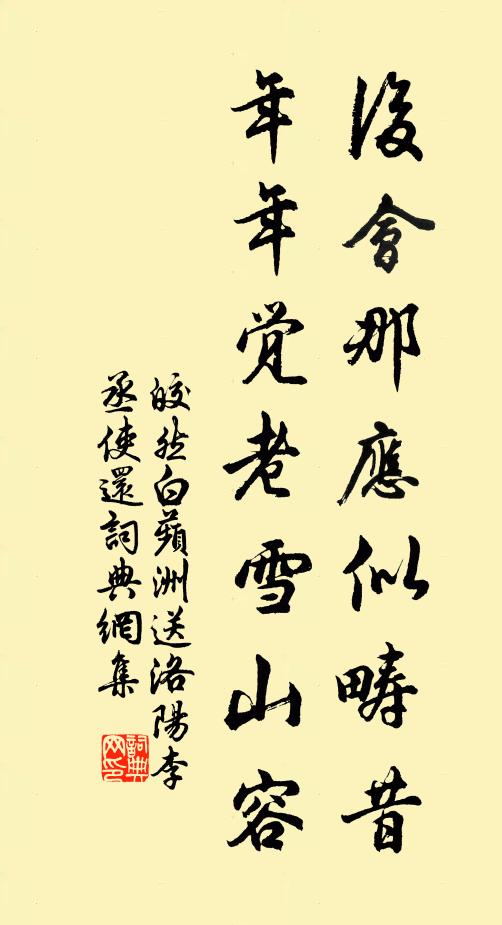 後會那應似疇昔
年年覚老雪山容
皎然白蘋洲送洛陽李
丞使還詞典網集
詞典
网印